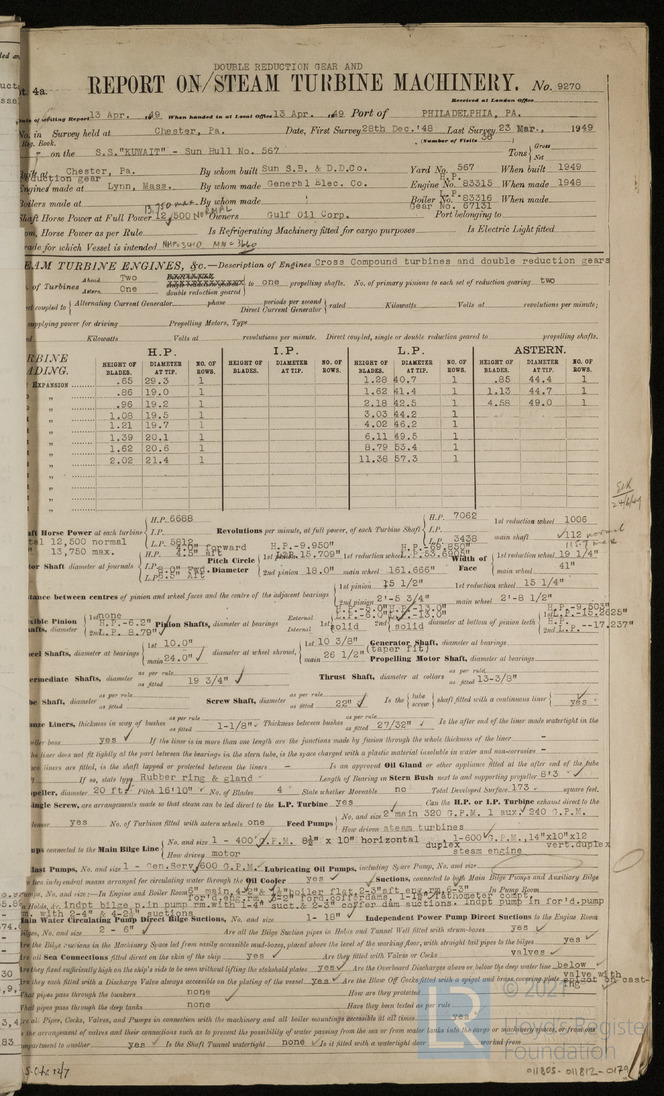 DOUBLE REDUCTION GEAR AND
4a. REPORT ON STEAM TURBINE MACHINERY. No. 9270
Received at London Office
13 Apr. 49 When handed in at Local Office 13 Apr. 49 Port of PHILADELPHIA, PA.
No. in Survey held at Chester, Pa. Date, First Survey 28th Dec. '48 Last Survey 23 Mar., 1949
Reg. Book. (Number of Visits 38
on the S.S."KUWAIT" - Sun Hull No. 567 Tons Gross Net
Chester, Pa. By whom built Sun S.B. & D.D.Co. Yard No. 567 When built 1949
Engines made at Lynn, Mass. By whom made General Elec. Co. Engine No. H.P. 83315 When made 1948
Boilers made at By whom made Boiler No. L.P. 83316 When made
Gear No. 67131
Shaft Horse Power at Full Power 12,500 Owners Gulf Oil Corp. Port belonging to
Horse Power as per Rule Is Refrigerating Machinery fitted for cargo purposes Is Electric Light fitted
for which Vessel is intended
TEAM TURBINE ENGINES, &c.—Description of Engines Cross Compound turbines and double reduction gears
of Turbines Ahead Two Astern One double reduction geared to one propelling shafts. No. of primary pinions to each set of reduction gearing two
coupled to Alternating Current Generator phase periods per second Direct Current Generator rated Kilowatts Volts at revolutions per minute;
supplying power for driving Propelling Motors, Type
Kilowatts Volts at revolutions per minute. Direct coupled, single or double reduction geared to propelling shafts.
H.P. I.P. L.P. ASTERN.
HEIGHT OF BLADES. DIAMETER AT TIP. NO. OF ROWS. HEIGHT OF BLADES. DIAMETER AT TIP. NO. OF ROWS. HEIGHT OF BLADES. DIAMETER AT TIP. NO. OF ROWS. HEIGHT OF BLADES. DIAMETER AT TIP. NO. OF ROWS.
EXPANSION .65 29.3 1 1.28 40.7 1 .85 44.4 1
" .86 19.0 1 1.62 41.4 1 1.13 44.7 1
" .96 19.2 1 2.18 42.5 1 4.58 49.0 1
" 1.08 19.5 1 3.03 44.2 1
" 1.21 19.7 1 4.02 46.2 1
" 1.39 20.1 1 6.11 49.5 1
" 1.62 20.6 1 8.79 53.4 1
" 2.02 21.4 1 11.38 57.3 1
Horse Power at each turbine H.P. 6688 I.P. L.P. 5812 Revolutions per minute, at full power, of each Turbine Shaft H.P. 7062 I.P. L.P. 3438 1st reduction wheel 1006 main shaft 112 normal
12,500 normal
13,750 max.
Shaft diameter at journals Pitch Circle Diameter 1st pinion H.P.-9.950" L.P. 15.709" 2nd pinion 18.0" 1st reduction wheel main wheel 161.666" Width of Face 1st reduction wheel 19 1/4" main wheel 41"
Distance between centres of pinion and wheel faces and the centre of the adjacent bearings 1st pinion 15 1/2" 2nd pinion 2'-5 3/4" 1st reduction wheel 15 1/4" main wheel 2'-8 1/2"
Flexible Pinion Shafts, diameter 1st none H.P.-6.2" 2nd L.P. 8.79" Pinion Shafts, diameter at bearings External Internal 1st solid 2nd solid diameter at bottom of pinion teeth
Wheel Shafts, diameter at bearings 1st 10.0" main 24.0" diameter at wheel shroud, 1st 10 3/8" main 26 1/2" (taper fit) Generator Shaft, diameter at bearings Propelling Motor Shaft, diameter at bearings
Intermediate Shafts, diameter as per rule as fitted 19 3/4" Thrust Shaft, diameter at collars as per rule as fitted 13-3/8"
Shaft, diameter as per rule as fitted Screw Shaft, diameter as per rule as fitted 22" Is the tube screw shaft fitted with a continuous liner yes
Liners, thickness in way of bushes as per rule as fitted 1-1/8" Thickness between bushes as per rule as fitted 27/32" Is the after end of the liner made watertight in the
propeller boss yes If the liner is in more than one length are the junctions made by fusion through the whole thickness of the liner -
the liner does not fit tightly at the part between the bearings in the stern tube, is the space charged with a plastic material insoluble in water and non-corrosive -
two liners are fitted, is the shaft lapped or protected between the liners - Is an approved Oil Gland or other appliance fitted at the after end of the tube
If so, state type Rubber ring & gland Length of Bearing in Stern Bush next to and supporting propeller 8'3
Propeller, diameter 20 ft. Pitch 16'10" No. of Blades 4 State whether Moveable no Total Developed Surface 173 square feet.
Single Screw, are arrangements made so that steam can be led direct to the L.P. Turbine yes Can the H.P. or I.P. Turbine exhaust direct to the
yes No. of Turbines fitted with astern wheels one Feed Pumps No. and size 2 main 320 G.P.M. 1 aux. 240 G.P.M. How driven steam turbines
connected to the Main Bilge Line No. and size 1 - 400 G.P.M. 8½" x 10" horizontal duplex 1-600 G.P.M., 14"x10"x12 vert.duplex How driven motor steam engine
Ballast Pumps, No. and size 1 - Gen.Serv/600 G.P.M. Lubricating Oil Pumps, including Spare Pump, No. and size
two independent means arranged for circulating water through the Oil Cooler yes Suctions, connected to both Main Bilge Pumps and Auxiliary Bilge
Pumps, No. and size:—In Engine and Boiler Room In Pump Room
In Holds, &c. indpt bilge p.in pump rm. with 1-4" suct.& 2-3" coffer dam suctions. indpt pump in for'd.pump
rm. with 2-4" & 4-2½" suctions
Main Water Circulating Pump Direct Bilge Suctions, No. and size 1- 18" Independent Power Pump Direct Suctions to the Engine Room
Bilges, No. and size 2 - 6" Are all the Bilge Suction pipes in Holds and Tunnel Well fitted with strum-boxes yes
Are the Bilge Suctions in the Machinery Space led from easily accessible mud-boxes, placed above the level of the working floor, with straight tail pipes to the bilges yes
Are all Sea Connections fitted direct on the skin of the ship yes Are they fitted with Valves or Cocks valves
Are they fixed sufficiently high on the ship's side to be seen without lifting the stokehold plates yes Are the Overboard Discharges above or below the deep water line below
Are they each fitted with a Discharge Valve always accessible on the plating of the vessel yes Are the Blow Off Cocks fitted with a spigot and brass covering plate valve with spigot on casting
What pipes pass through the bunkers none How are they protected
What pipes pass through the deep tanks none Have they been tested as per rule
Are all Pipes, Cocks, Valves, and Pumps in connection with the machinery and all boiler mountings accessible at all times yes
Is the arrangement of valves and their connections such as to prevent the possibility of water passing from the sea or from water tanks into the cargo or machinery spaces, or from one
compartment to another yes Is the Shaft Tunnel watertight none Is it fitted with a watertight door worked from
© 2021
Lloyd's Register
Foundation
011805-011812-0179